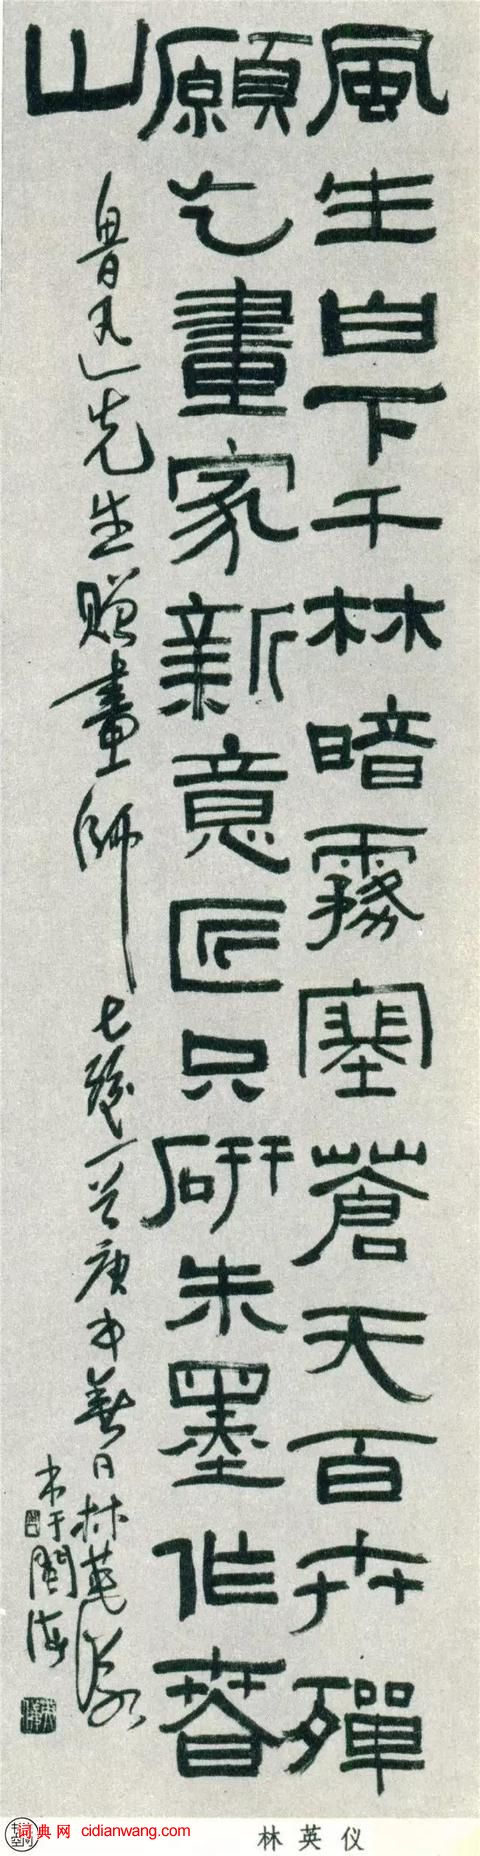 風生白下千林暗霧塞蒼天百卉殫
願乞畫家新意匠只研朱墨作春
山
魯迅先生贈畫師七絕一首庚申春日林英儀
書于閩海
词典网 cidianwang.com
林英仪